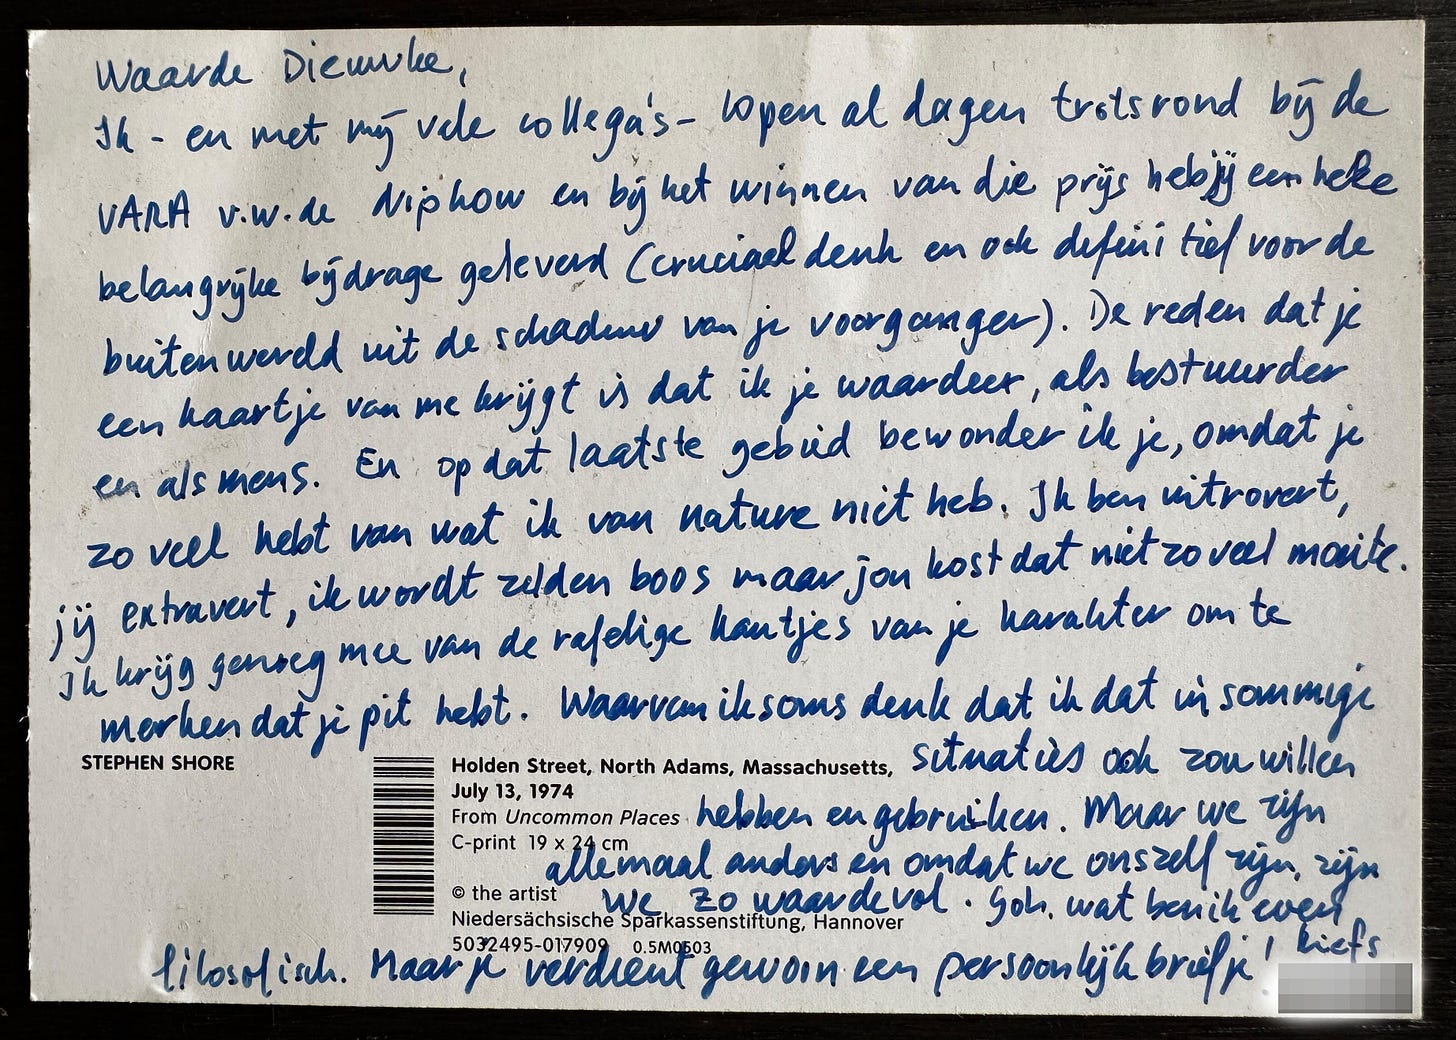 Waarde Diewwke,
Ik - en met mij vele collega's - lopen al dagen trots rond bij de
VARA v.w.de Nipkow en bij het winnen van die prijs heb jij een hele
belangrijke bijdrage geleverd (cruciaal denk en ook definitief voor de
buitenwereld uit de schaduw van je voorganger). De reden dat je
een kaartje van me krijgt is dat ik je waardeer, als bestuurder
en als mens. En op dat laatste gebied bewonder ik je, omdat je
zo veel hebt van wat ik van nature niet heb. Ik ben introvert,
jij extravert, ik wordt zelden boos maar jou kost dat niet zo veel moeite.
Ik krijg genoeg mee van de rafelige kantjes van je karakter om te
merken dat je pit hebt. Waarvan ik soms denk dat ik dat in sommige
situaties ook zou willen
hebben en gebruiken. Maar we zijn
allemaal anders en omdat we onszelf zijn, zijn
we zo waardevol. Goh, wat ben ik even
filosofisch. Maar je verdient gewoon een persoonlijk briefje! liefs
STEPHEN SHORE
Holden Street, North Adams, Massachusetts,
July 13, 1974
From Uncommon Places
C-print 19 x 24 cm
© the artist
Niedersächsische Sparkassenstiftung, Hannover
5032495-017909 0.5M0503